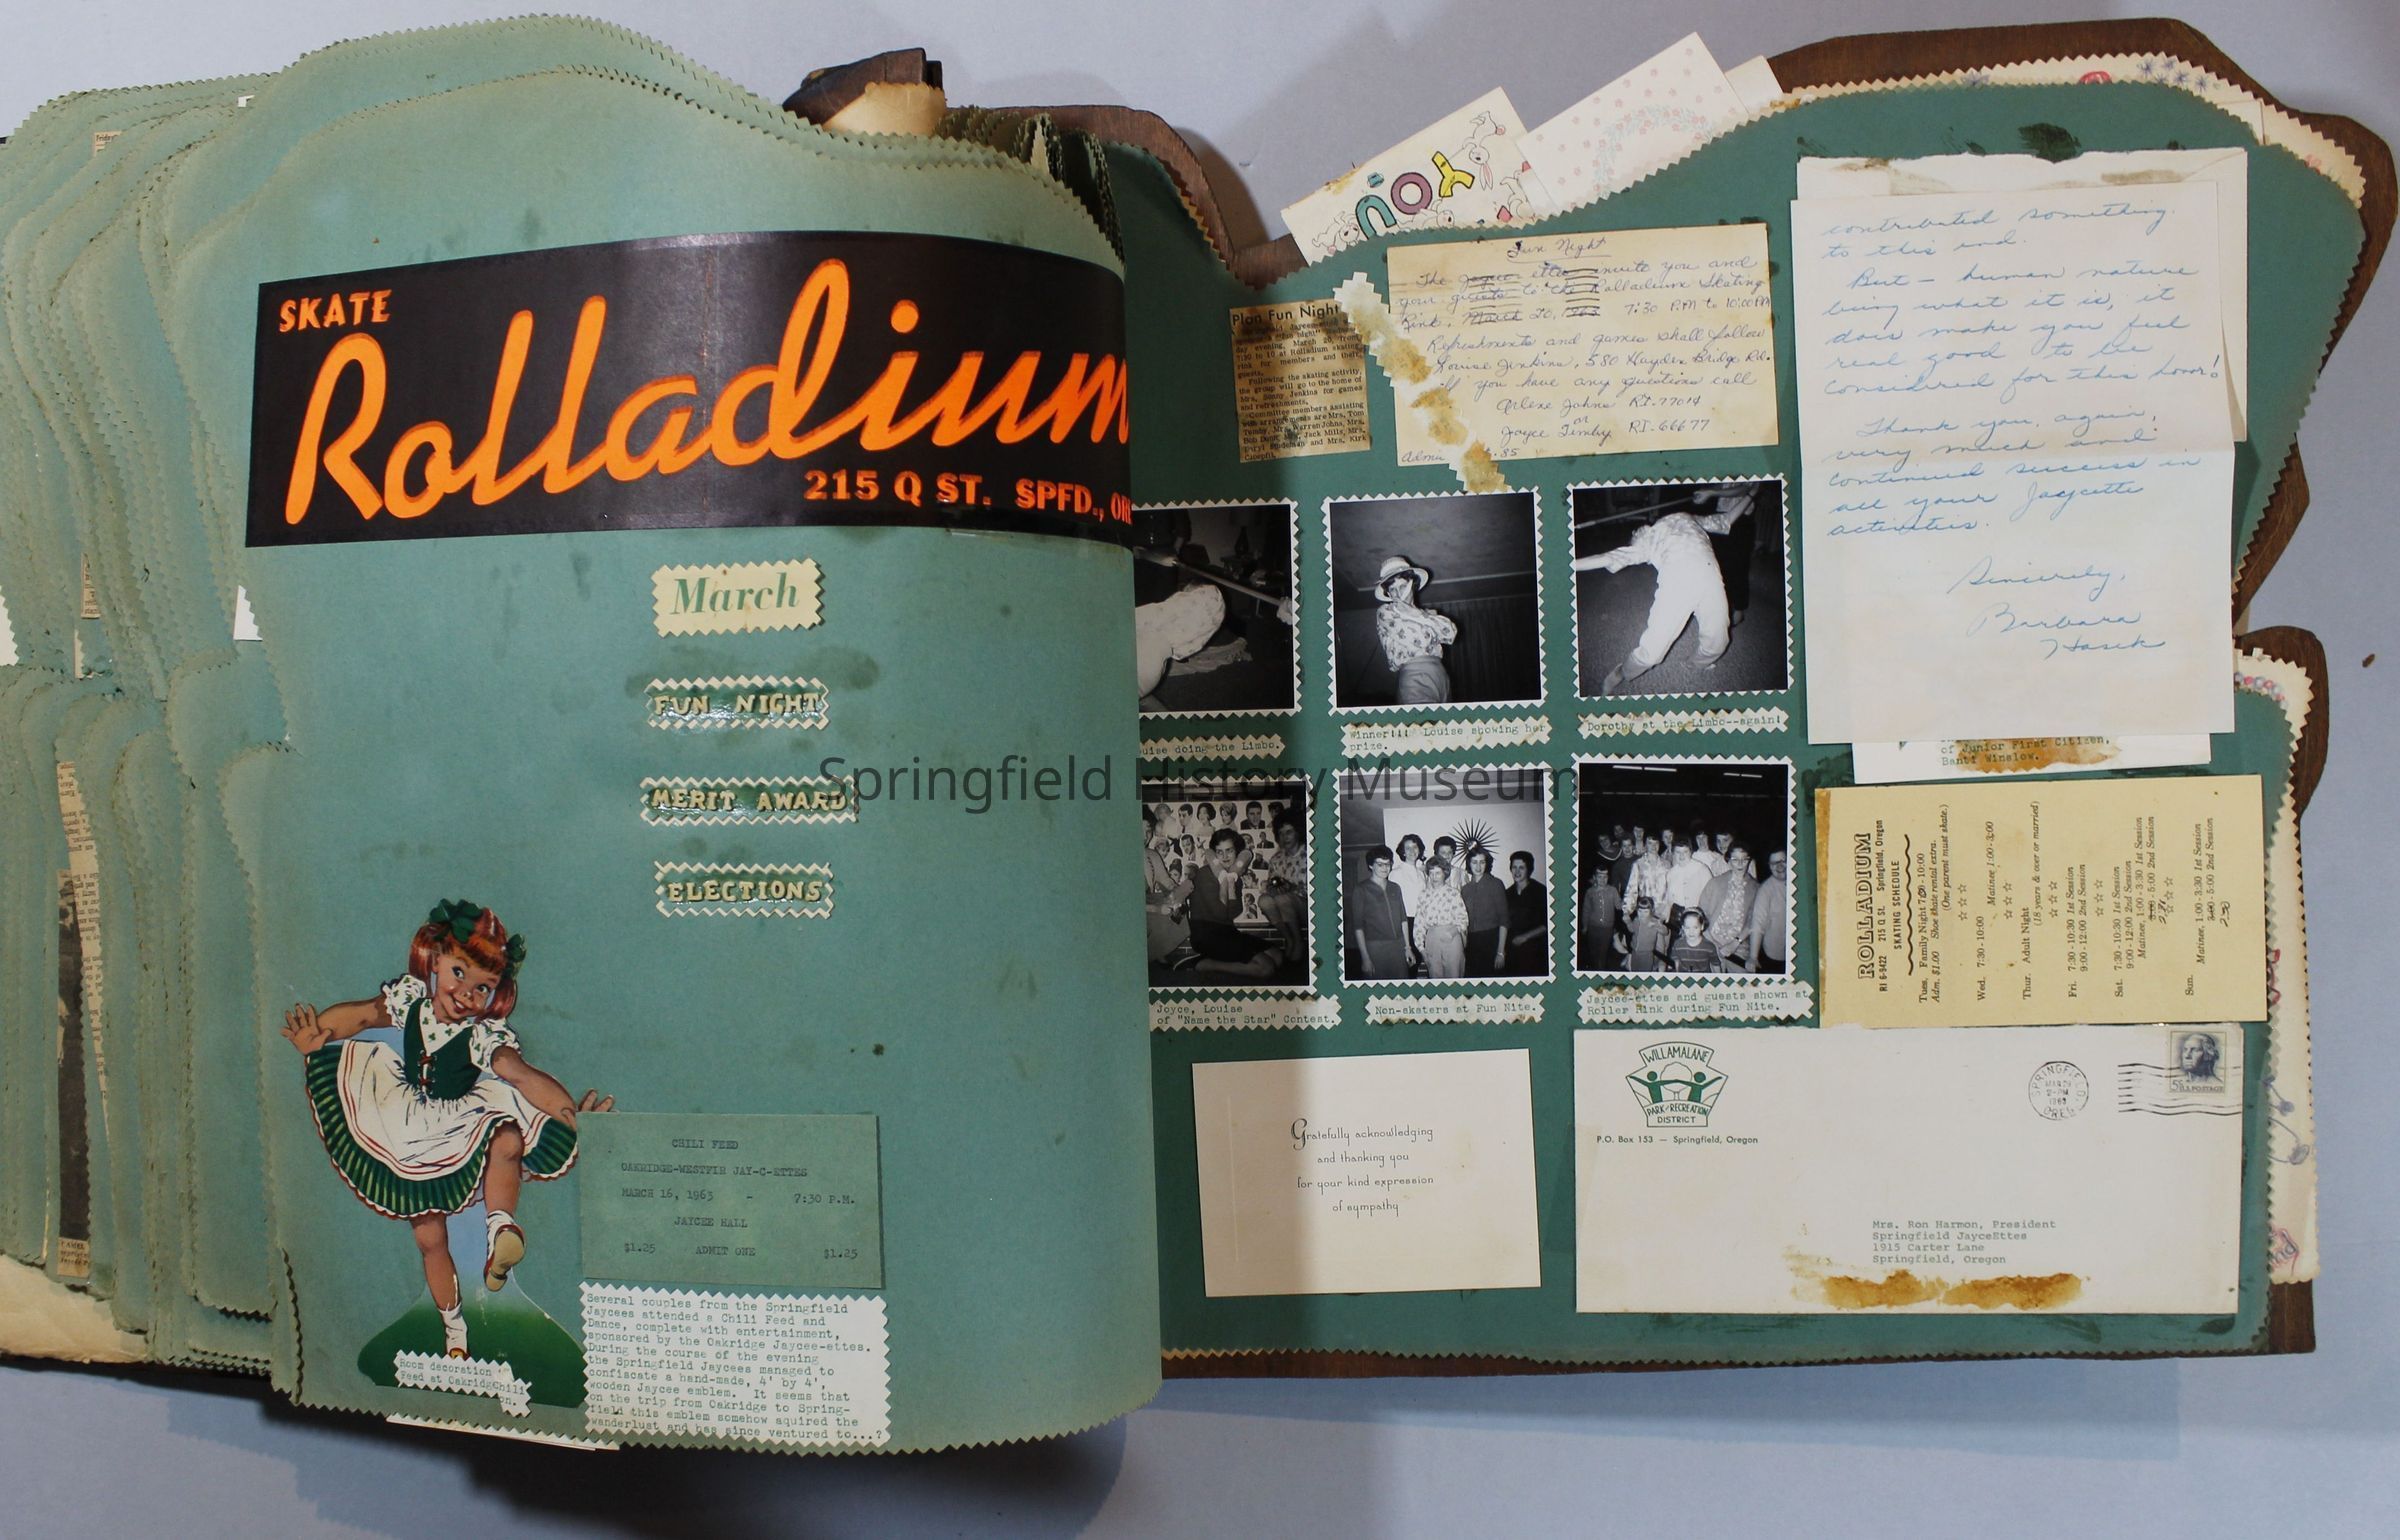 SKATE
Rolladium
215 Q ST. SPFD., OR
March
FUN NIGHT
MERIT AWARD
ELECTIONS
CHILI FEED
OAKRIDGE-WESTFIR JAY-C-ETTES
MARCH 16, 1963 - 7:30 P.M.
JAYCEE HALL
$1.25 ADMIT ONE $1.25
Room decoration
Feed at Oakridg Chili
on.
Several couples from the Springfield
Jaycees attended a Chili Feed and
Dance, complete with entertainment,
sponsored by the Oakridge Jaycee-ettes.
During the course of the evening
the Springfield Jaycees managed to
confiscate a hand-made, 4' by 4',
wooden Jaycee emblem. It seems that
on the trip from Oakridge to Spring-
field this emblem somehow aquired the
wanderlust and has since ventured to...?
YOU
Plan Fun Night
day evening, March 20, from
7:30 to 10 at Rolladium skating
rink for members and their
guests.
Following the skating activity,
the group will go to the home of
Mrs. Sonny Jenkins for games
and refreshments.
Committee members assisting
with arrangements are Mrs. Tom
Temby, Mrs. Warren Johns, Mrs.
Bob Mrs. Jack Mills, Mrs.
and Mrs. Kirk
Fun Night
The Jaycee-ettes invite you and
your guests to the Rolladium Skating
Rink, March 20, 1963 7:30 P.M to 10:00 PM
Refreshments and games shall follow
Louise Jenkins, 580 Hayden Bridge Rd.
If you have any questions call
Arlene Johns RI-77014
or
Joyce Timby RI-66677
Admi .85
contributed something
to this end.
But - human nature
being what it is, it
does make you feel
real good to be
considered for this honor!
Thank you, again,
very much and
continued success in
all your Jaycette
activities.
Sincerely,
Barbara
Hasek
of Junior First Citizen,
Banti Winslow.
uise doing the Limbo.
Winner!!! Louise showing her
prize.
Dorothy at the Limbo--again!
Joyce, Louise
of "Name the Star" Contest.
Non-skaters at Fun Nite.
Jaycee-ettes and guests shown at
Roller Rink during Fun Nite.
ROLLADIUM
RI 6-9422 215 Q St. Springfield, Oregon
SKATING SCHEDULE
Tues. Family Night 7:30-10:00
Adm. $1.00 Shoe skate rental extra.
(One parent must skate.)
Wed. 7:30-10:00 Matinee 1:00-3:00
Thur. Adult Night
(18 years & over or married)
Fri. 7:30-10:30 1st Session
9:00-12:00 2nd Session
Sat. 7:30-10:30 1st Session
9:00-12:00 2nd Session
Matinee, 1:00-3:30 1st Session
3:00-5:00 2nd Session
2:30
Sun. Matinee, 1:00-3:30 1st Session
3:00-5:00 2nd Session
2:30
Gratefully acknowledging
and thanking you
for your kind expression
of sympathy
WILLAMALANE
PARK AND RECREATION
DISTRICT
P.O. Box 153 — Springfield, Oregon
SPRINGFIELD
MAR 21
2-PM
1963
OREG.
5¢ U.S. POSTAGE
Mrs. Ron Harmon, President
Springfield JayceEttes
1915 Carter Lane
Springfield, Oregon
Springfield History Museum